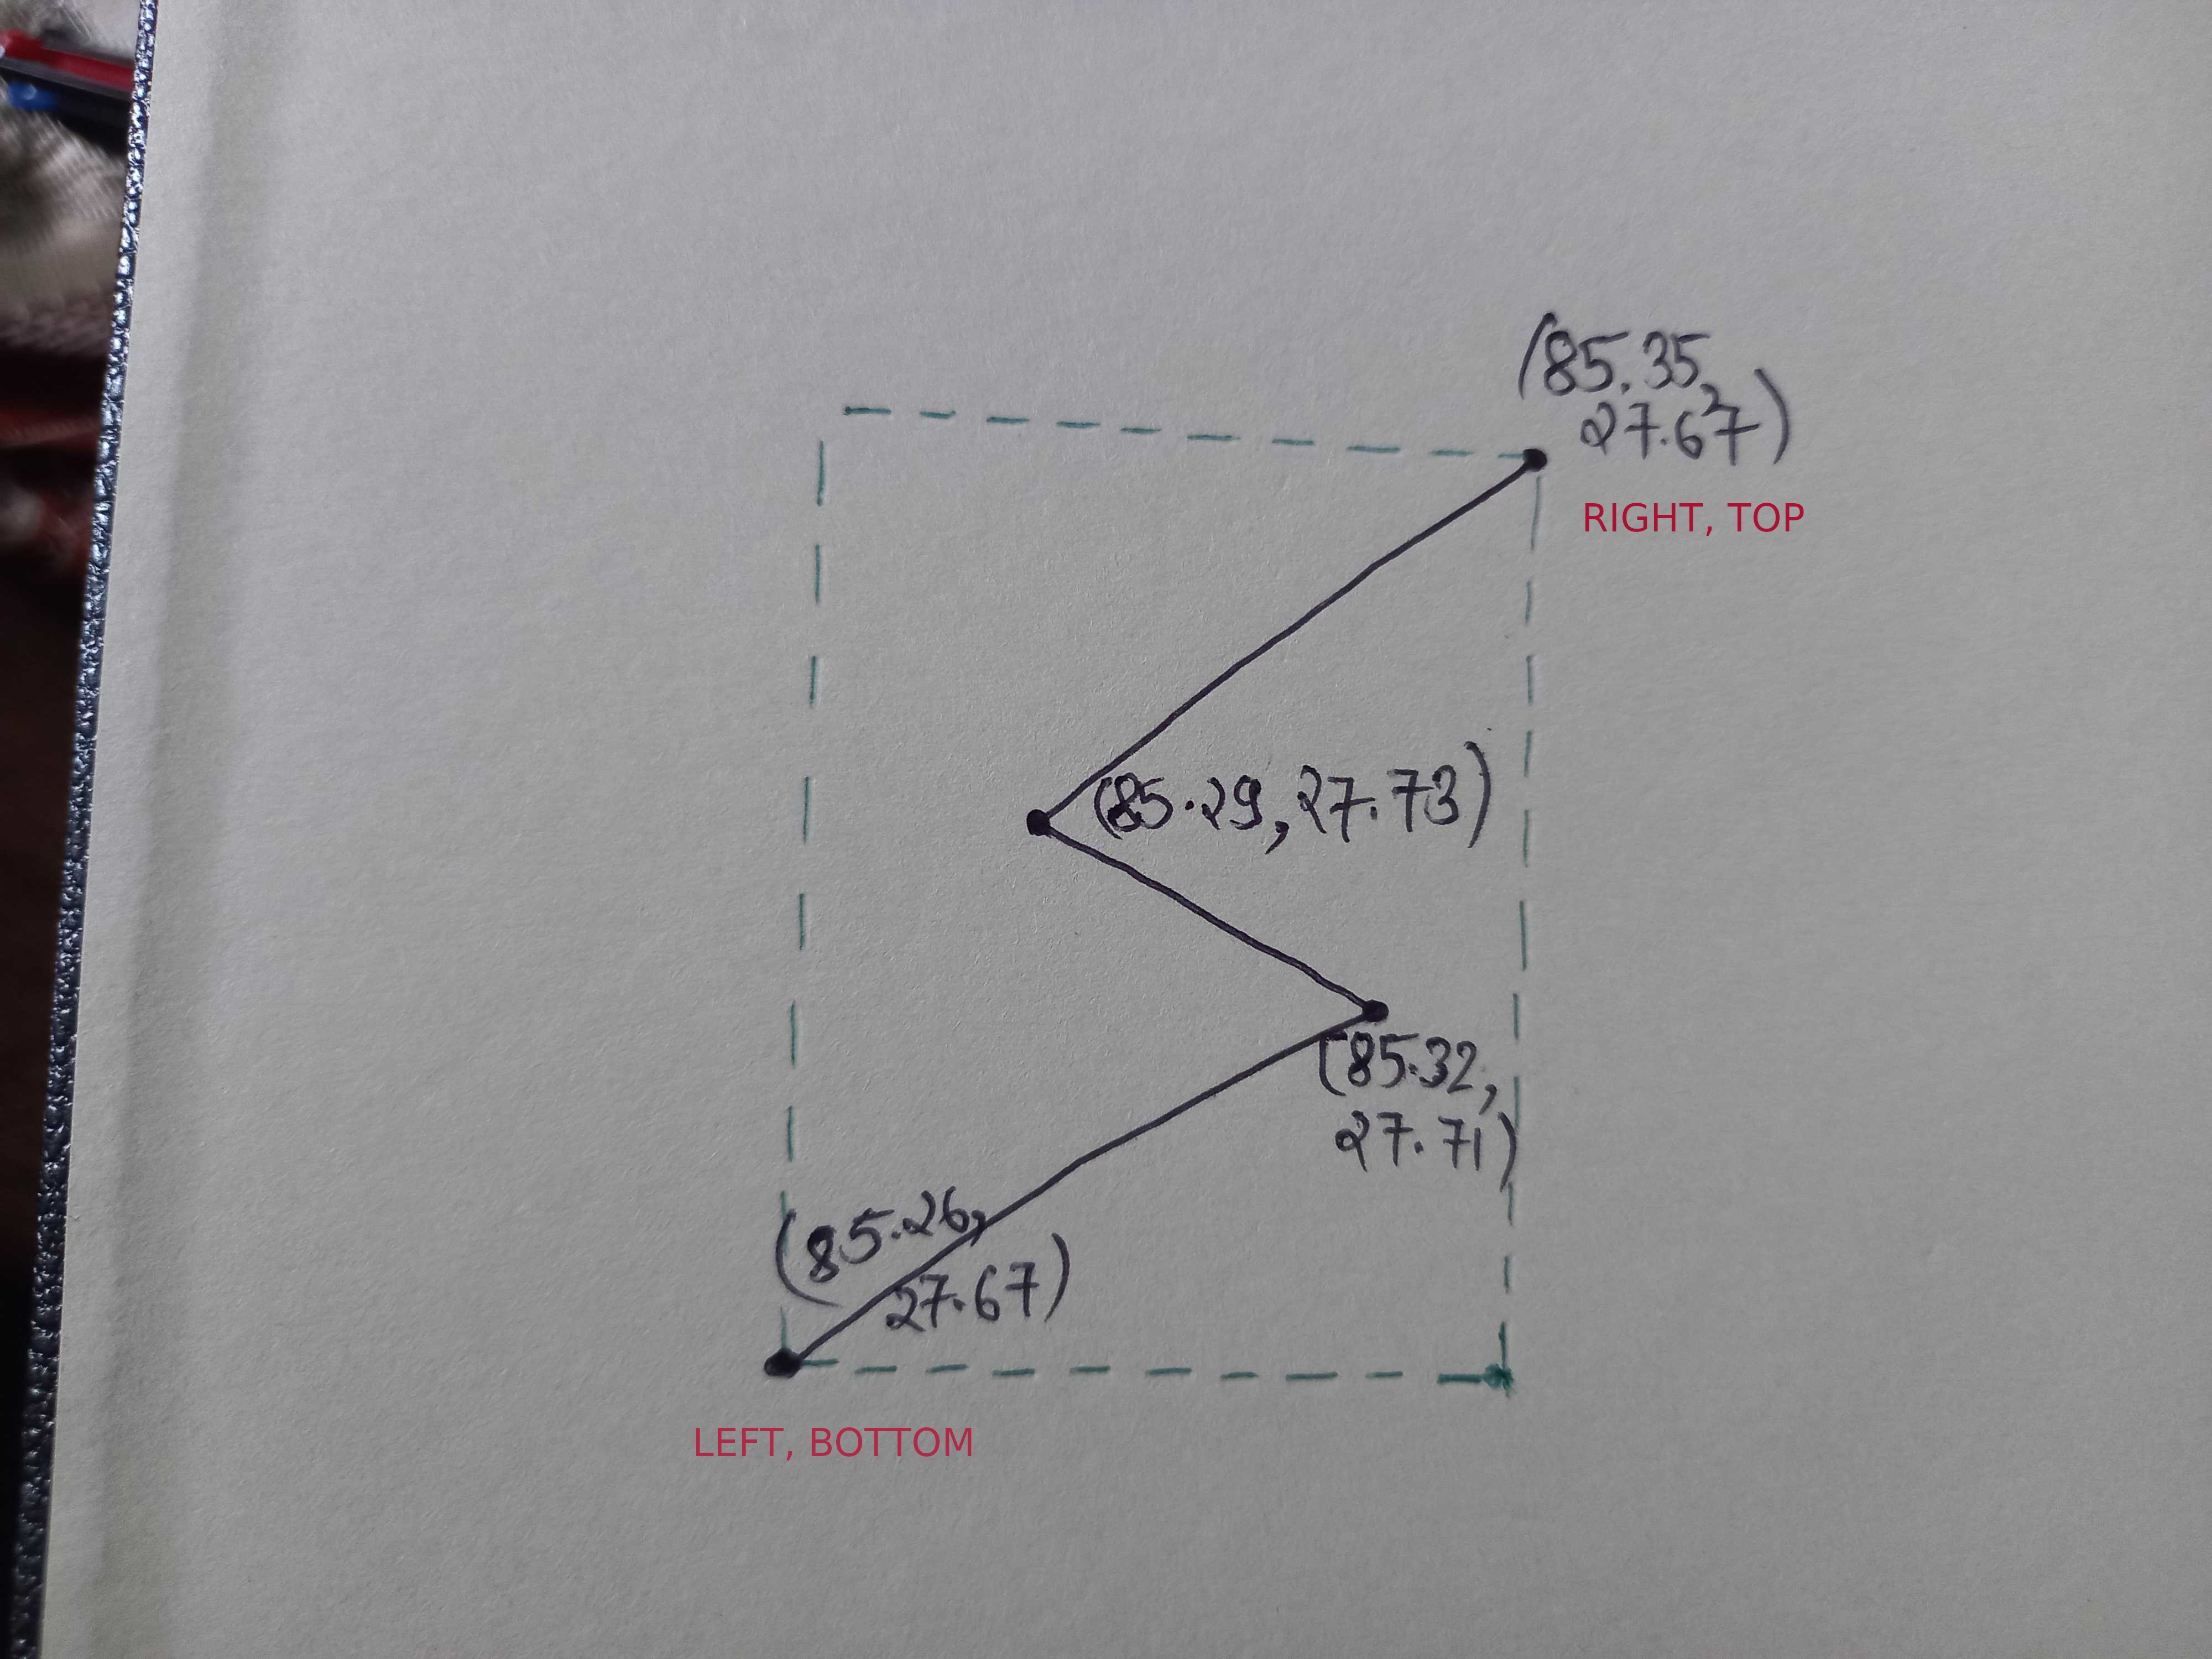 (85.35,
27.67)
RIGHT, TOP
(85.29, 27.73)
(85.32,
27.71)
(85.26,
27.67)
LEFT, BOTTOM